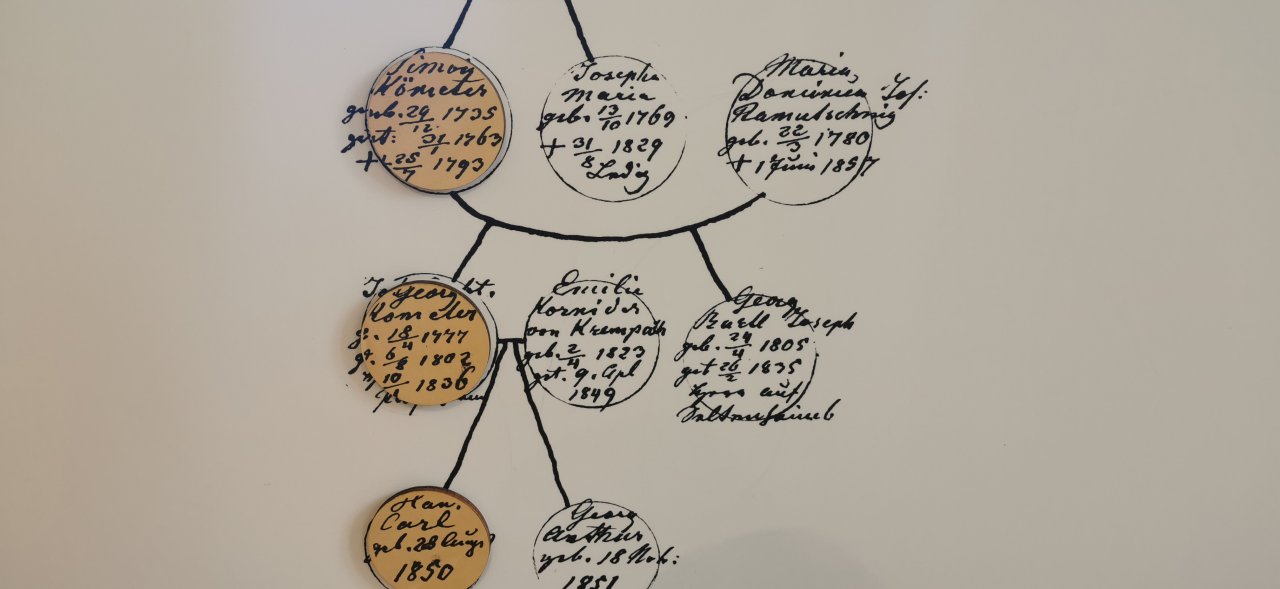 Simon
Kömeter
geb. 29/12 1735
get: 31/1 1763
+ 25/7 1793
Josepha
Maria
geb. 13/10 1769.
+ 31/8 1829
Ledig
Maria,
Dominica Jos:
Ramutschnig
geb. 22/3 1780
+ 1 Juni 1857
Georg
Kömeter
g. 18/4 1777
gt. 6/8 1802
10 1836
Emilie
von Krempach
geb. 2/4 1823
get. 9. Apl
1849
Georg
Joseph
geb. 24/4 1805
get 26/2 1835
auf
Han.
Carl
geb. 28 Augs
1850
Georg
Arthur
geb. 18 Nob:
1851